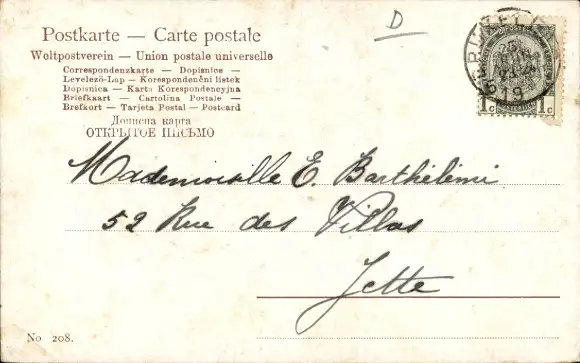 D
Postkarte — Carte postale
Weltpostverein — Union postale universelle
Correspondenzkarte — Dopisnice —
Levelező-Lap — Korespondenční listek
Dopisnica — Karta Korespondencyjna
Briefkaart — Cartolina Postale —
Brefkort — Tarjeta Postal — Postcard
Дописна карта
ОТКРЫТОЕ ПИСЬМО
1c 1c
Mademoiselle E. Barthélémi
52 Rue des Villas
Jette
No 208.